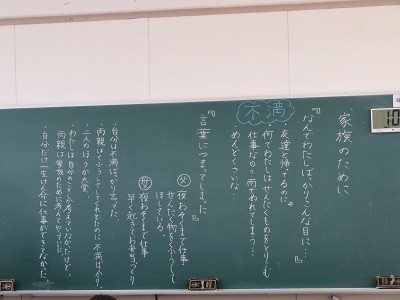 家族のために
『なんでわたしばっかりこんな目に…』
不満
・友達と帰ってるのに。
・何でわたしはせんたくものをとりこむ
仕事なの?雨ぬれてしまう…
めんどくさいな…
『言葉につまってしまった』
父 夜おそくまで仕事
せんたく物をくふうして
ほしている。
母 夜おそくまで仕事
早く起きておべん当づくり
・自分は不満ばっかり言った。
・両親はくふうしてくれてるのに不満ばかり。
・二人のほうが大変
・わたしは自分のことを考えていなかったけど、
両親は家族のために考えてやっていた。
・自分だけ一生けん命に仕事ができてなかった。
10